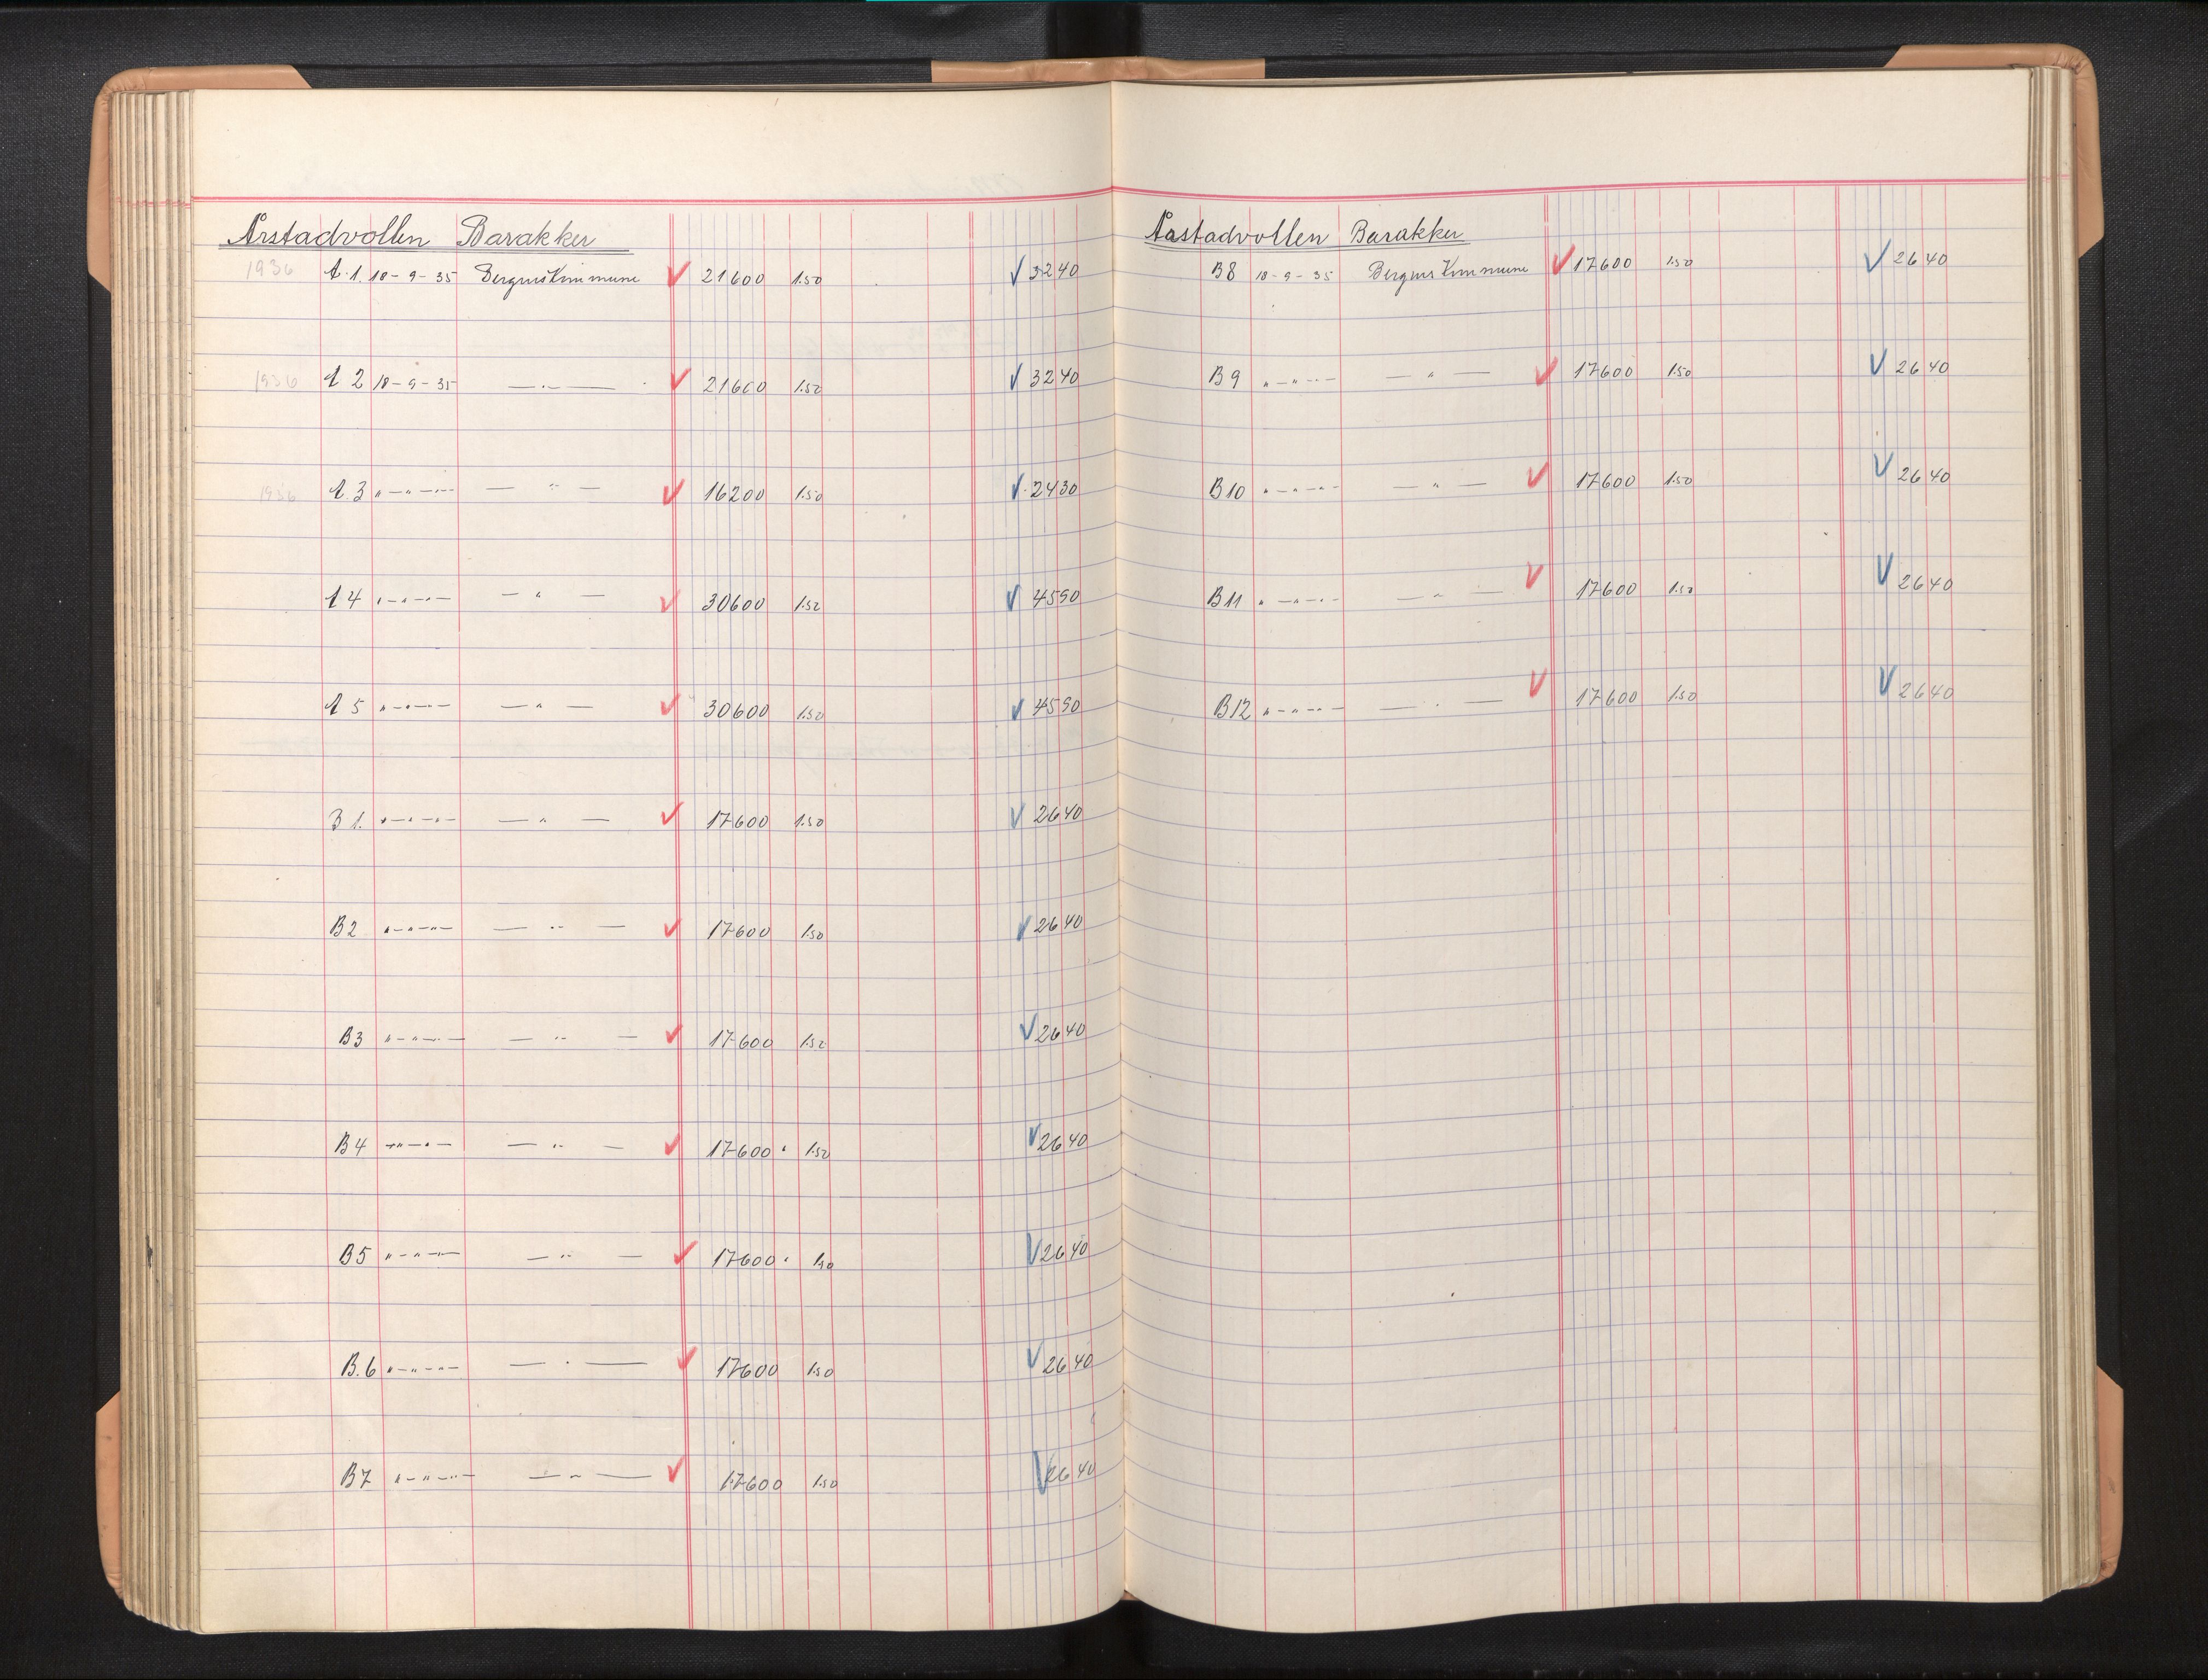 Årstadvollen Barakker
1936 A.1. 18-9-35 Bergens Kommune ✓ 21600 1.50 ✓ 3240
1936 A 2 18-9-35 — " — ✓ 21600 1.50 ✓ 3240
1936 A.3 "-"-" — " — ✓ 16200 1.50 ✓ 2430
A 4 "-"-" — " — ✓ 30600 1.50 ✓ 4590
A 5 "-"-" — " — ✓ 30600 1.50 ✓ 4590
B 1. "-"-" — " — ✓ 17600 1.50 ✓ 2640
B2 "-"-" — " — ✓ 17600 1.50 ✓ 2640
B3 "-"-" — " — ✓ 17600 1.50 ✓ 2640
B4 "-"-" — " — ✓ 17600 1.50 ✓ 2640
B5 "-"-" — " — ✓ 17600 1.50 ✓ 2640
B.6 "-"-" — " — ✓ 17600 1.50 ✓ 2640
B7 "-"-" — " — ✓ 17600 1.50 ✓ 2640
Årstadvollen Barakker
B8 18-9-35 Bergens Kommune ✓ 17600 1.50 ✓ 2640
B9 "-"-" — " — ✓ 17600 1.50 ✓ 2640
B10 "-"-" — " — ✓ 17600 1.50 ✓ 2640
B11 "-"-" — " — ✓ 17600 1.50 ✓ 2640
B12 "-"-" — " — ✓ 17600 1.50 ✓ 2640